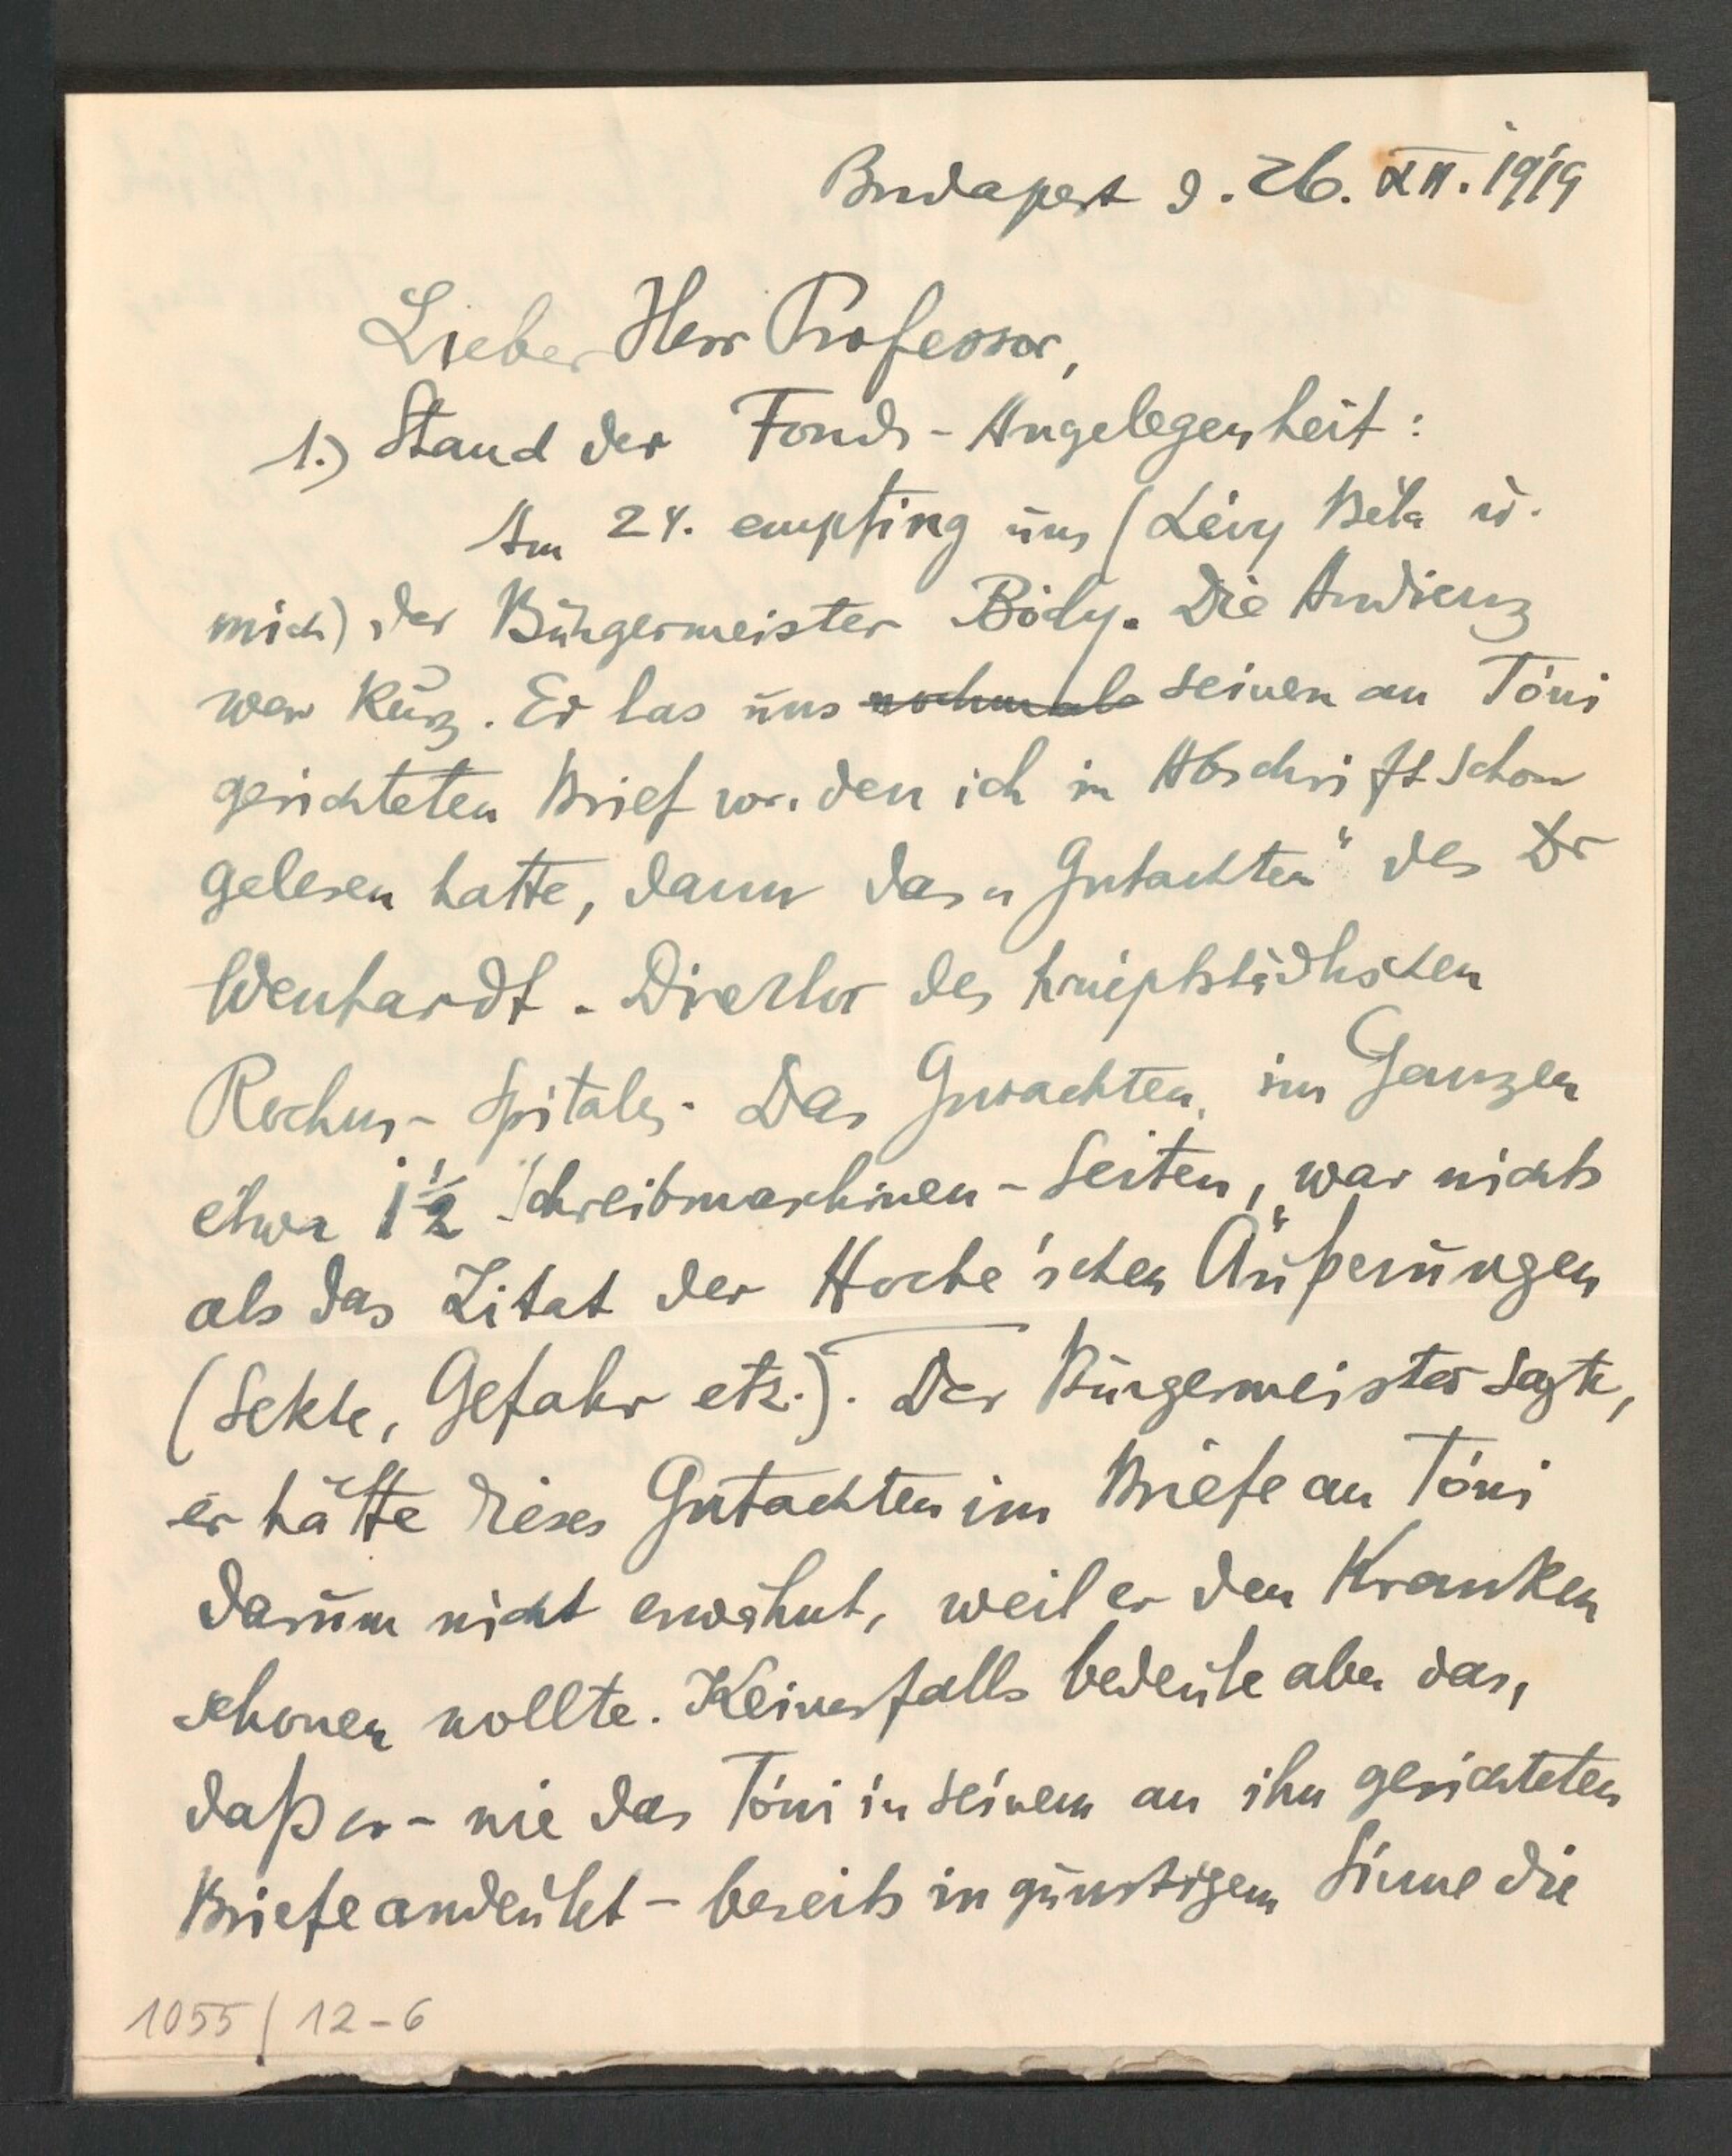 Budapest d. 26. XII. 1919
Lieber Herr Professor,
1.) Stand der Fonds-Angelegenheit:
Am 24. empfing uns (Lévy Béla u.
mich) der Bürgermeister Bódy. Die Audienz
war kurz. Er las uns nochmals seinen an Tóni
gerichteten Brief vor, den ich in Abschrift schon
gelesen hatte, dann das „Gutachten“ des Dr
Wenhardt - Direktor des hauptstädtischen
Rochus-Spitales. Das Gutachten, im Ganzen
etwa 1½ Schreibmaschinen-Seiten, war nichts
als das Zitat der Hoche'schen Äußerungen
(Sekte, Gefahr etz.). Der Bürgermeister sagte,
er hätte dieses Gutachten im Briefe an Tóni
darum nicht erwähnt, weil er den Kranken
schonen wollte. Keinesfalls bedeute aber das,
daß er - wie das Tóni in seinem an ihn gerichteten
Briefe andeutet - bereits in günstigem Sinne die
1055/12-6